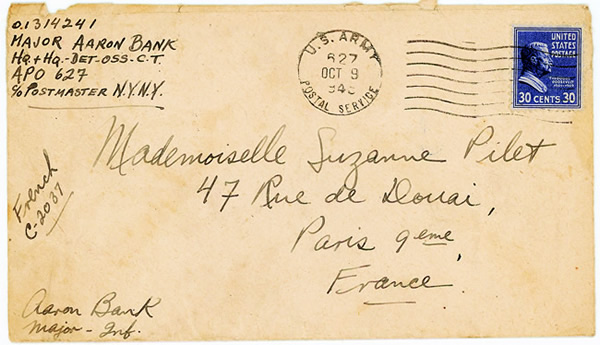 0.1314241
MAJOR AARON BANK
HQ + HQ.-DET-OSS-C.T.
APO 627
c/o POSTMASTER N.Y.N.Y.
U.S. ARMY
627
OCT 9
POSTAL SERVICE
UNITED
STATES
POSTAGE
30 CENTS 30
Mademoiselle Suzanne Pilet
47 Rue de Douai,
Paris 9eme
France.
French
C-2037
Aaron Bank
Major - Inf.